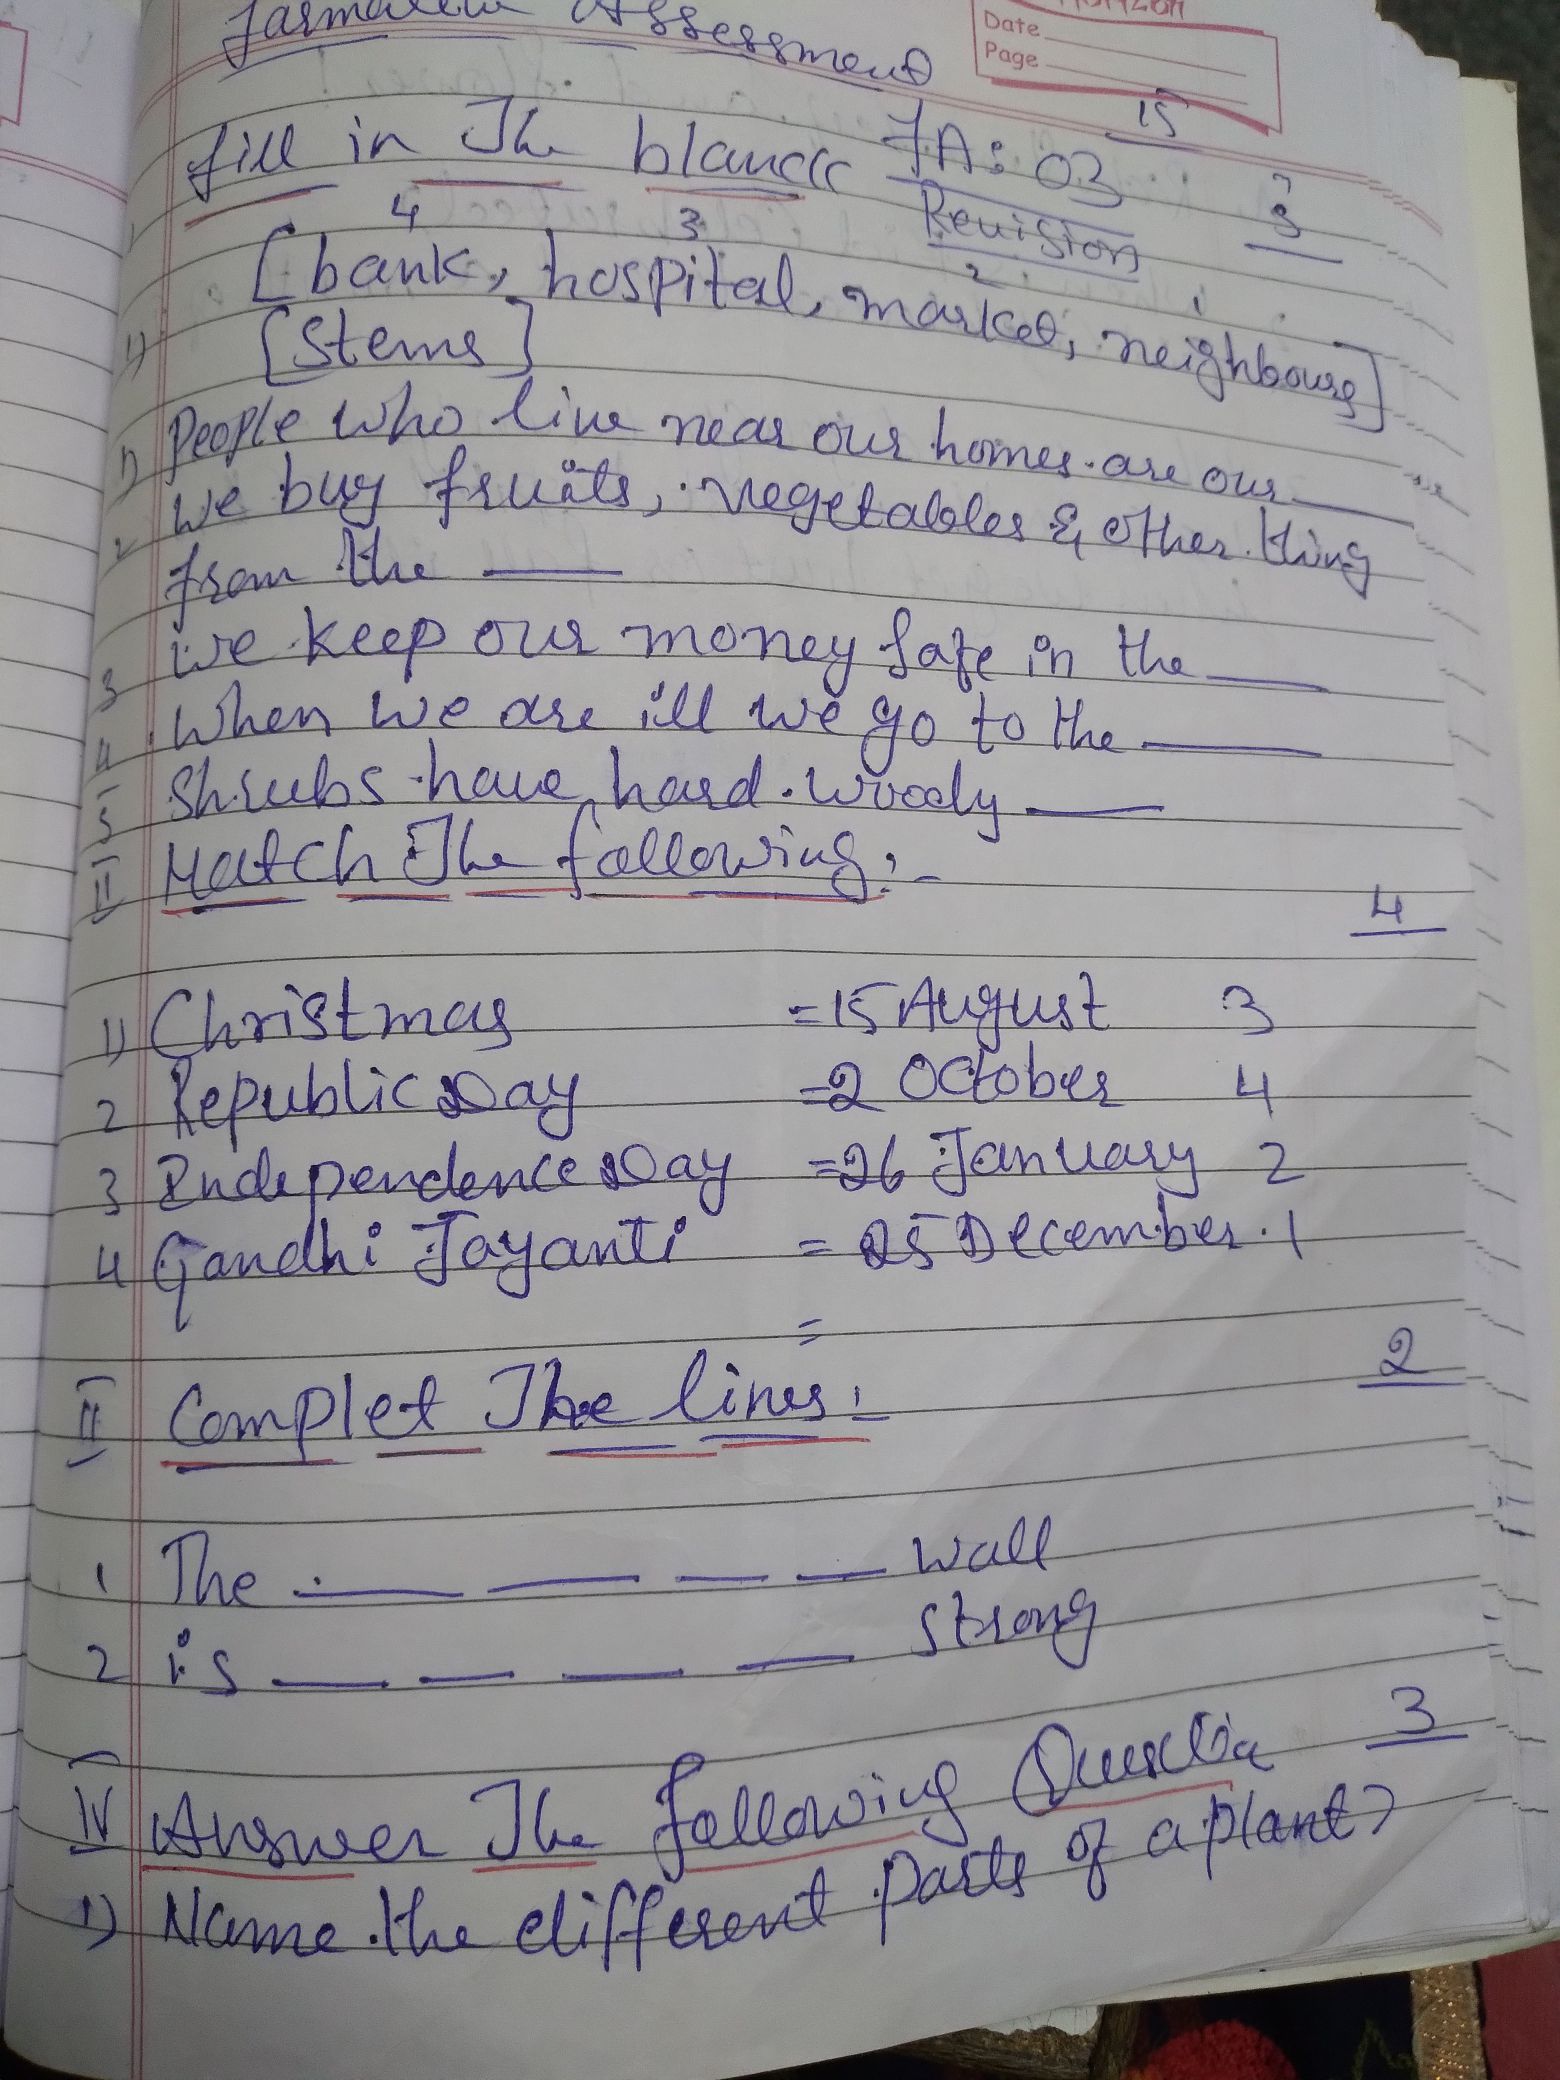 Assessment
Date
Page
15
fill in The blancks FA: 03
Revision
4 3 2 1
[bank, hospital, market, neighbours]
1) [Stems]
1) People who live near our homes are our ___
2 we buy fruits, vegetables & other thing
from the ___
3 we keep our money safe in the ___
4 when we are ill we go to the ___
5 Shrubs have hard woody ___
II Match The following:-
4
1) Christmas =15 August 3
2 Republic Day =2 October 4
3 Independence Day =26 January 2
4 Gandhi Jayanti = 25 December. 1
=
2
II Complet The lines:-
1 The ___ ___ ___ ___ wall
2 is ___ ___ ___ ___ strong
3
IV Answer The following
1) Name the different parts of a plant?